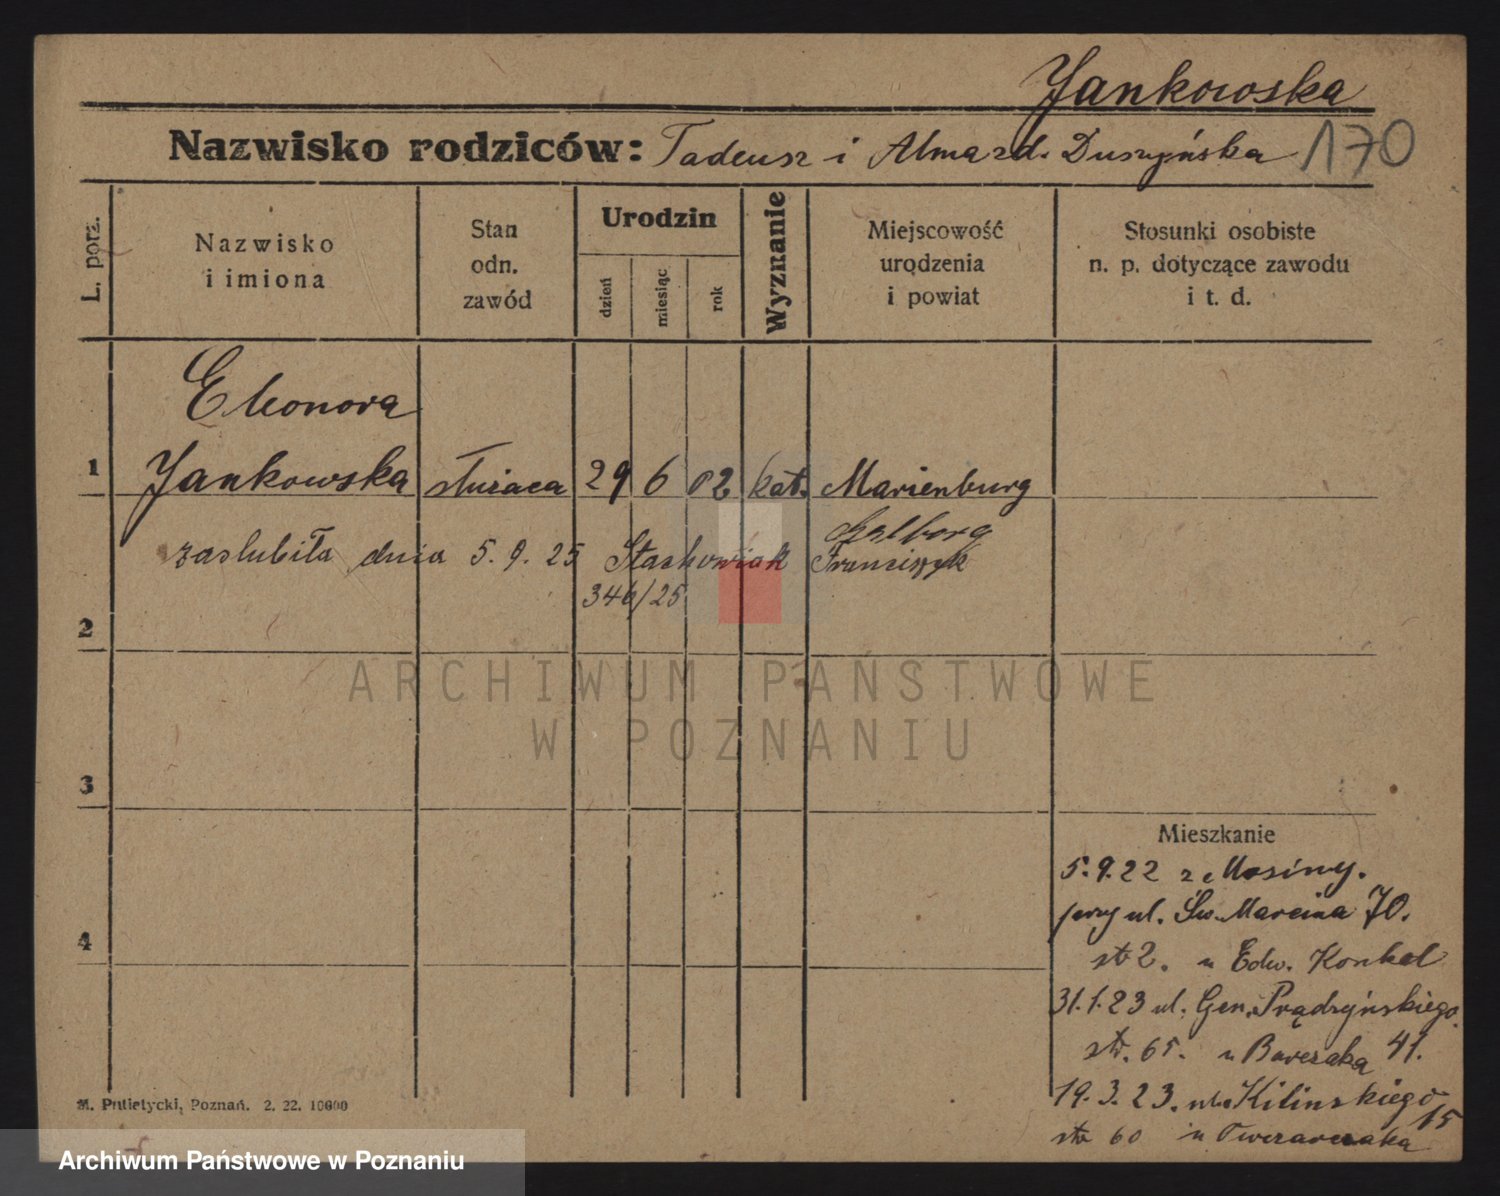 Jankowska
Nazwisko rodziców: Tadeusz i Alma zd. Duszyńska 170
L. porz.
Nazwisko
i imiona
Stan
odn.
zawód
Urodzin
dzień
miesiąc
rok
Wyznanie
Miejscowość
urodzenia
i powiat
Stosunki osobiste
n. p. dotyczące zawodu
i t. d.
Eleonora
1 Jankowska służąca 29 6 02 kat. Marienburg
zaslubiła dnia 5. 9. 25 Stachowiak Franciszek
346/25
2
ARCHIWUM PAŃSTWOWE
W POZNANIU
3
Mieszkanie
5.9.22 z Mosiny.
przy ul. Św. Marcina 70.
str 2. u Edw. Konkel
4
31.1.23 ul. Gen. Prądzyńskiego
str. 65. u 41.
19.3.23. ul. Kilinskiego 15
str 60 u
M. Putiatycki, Poznań. 2. 22. 10000
Archiwum Państwowe w Poznaniu